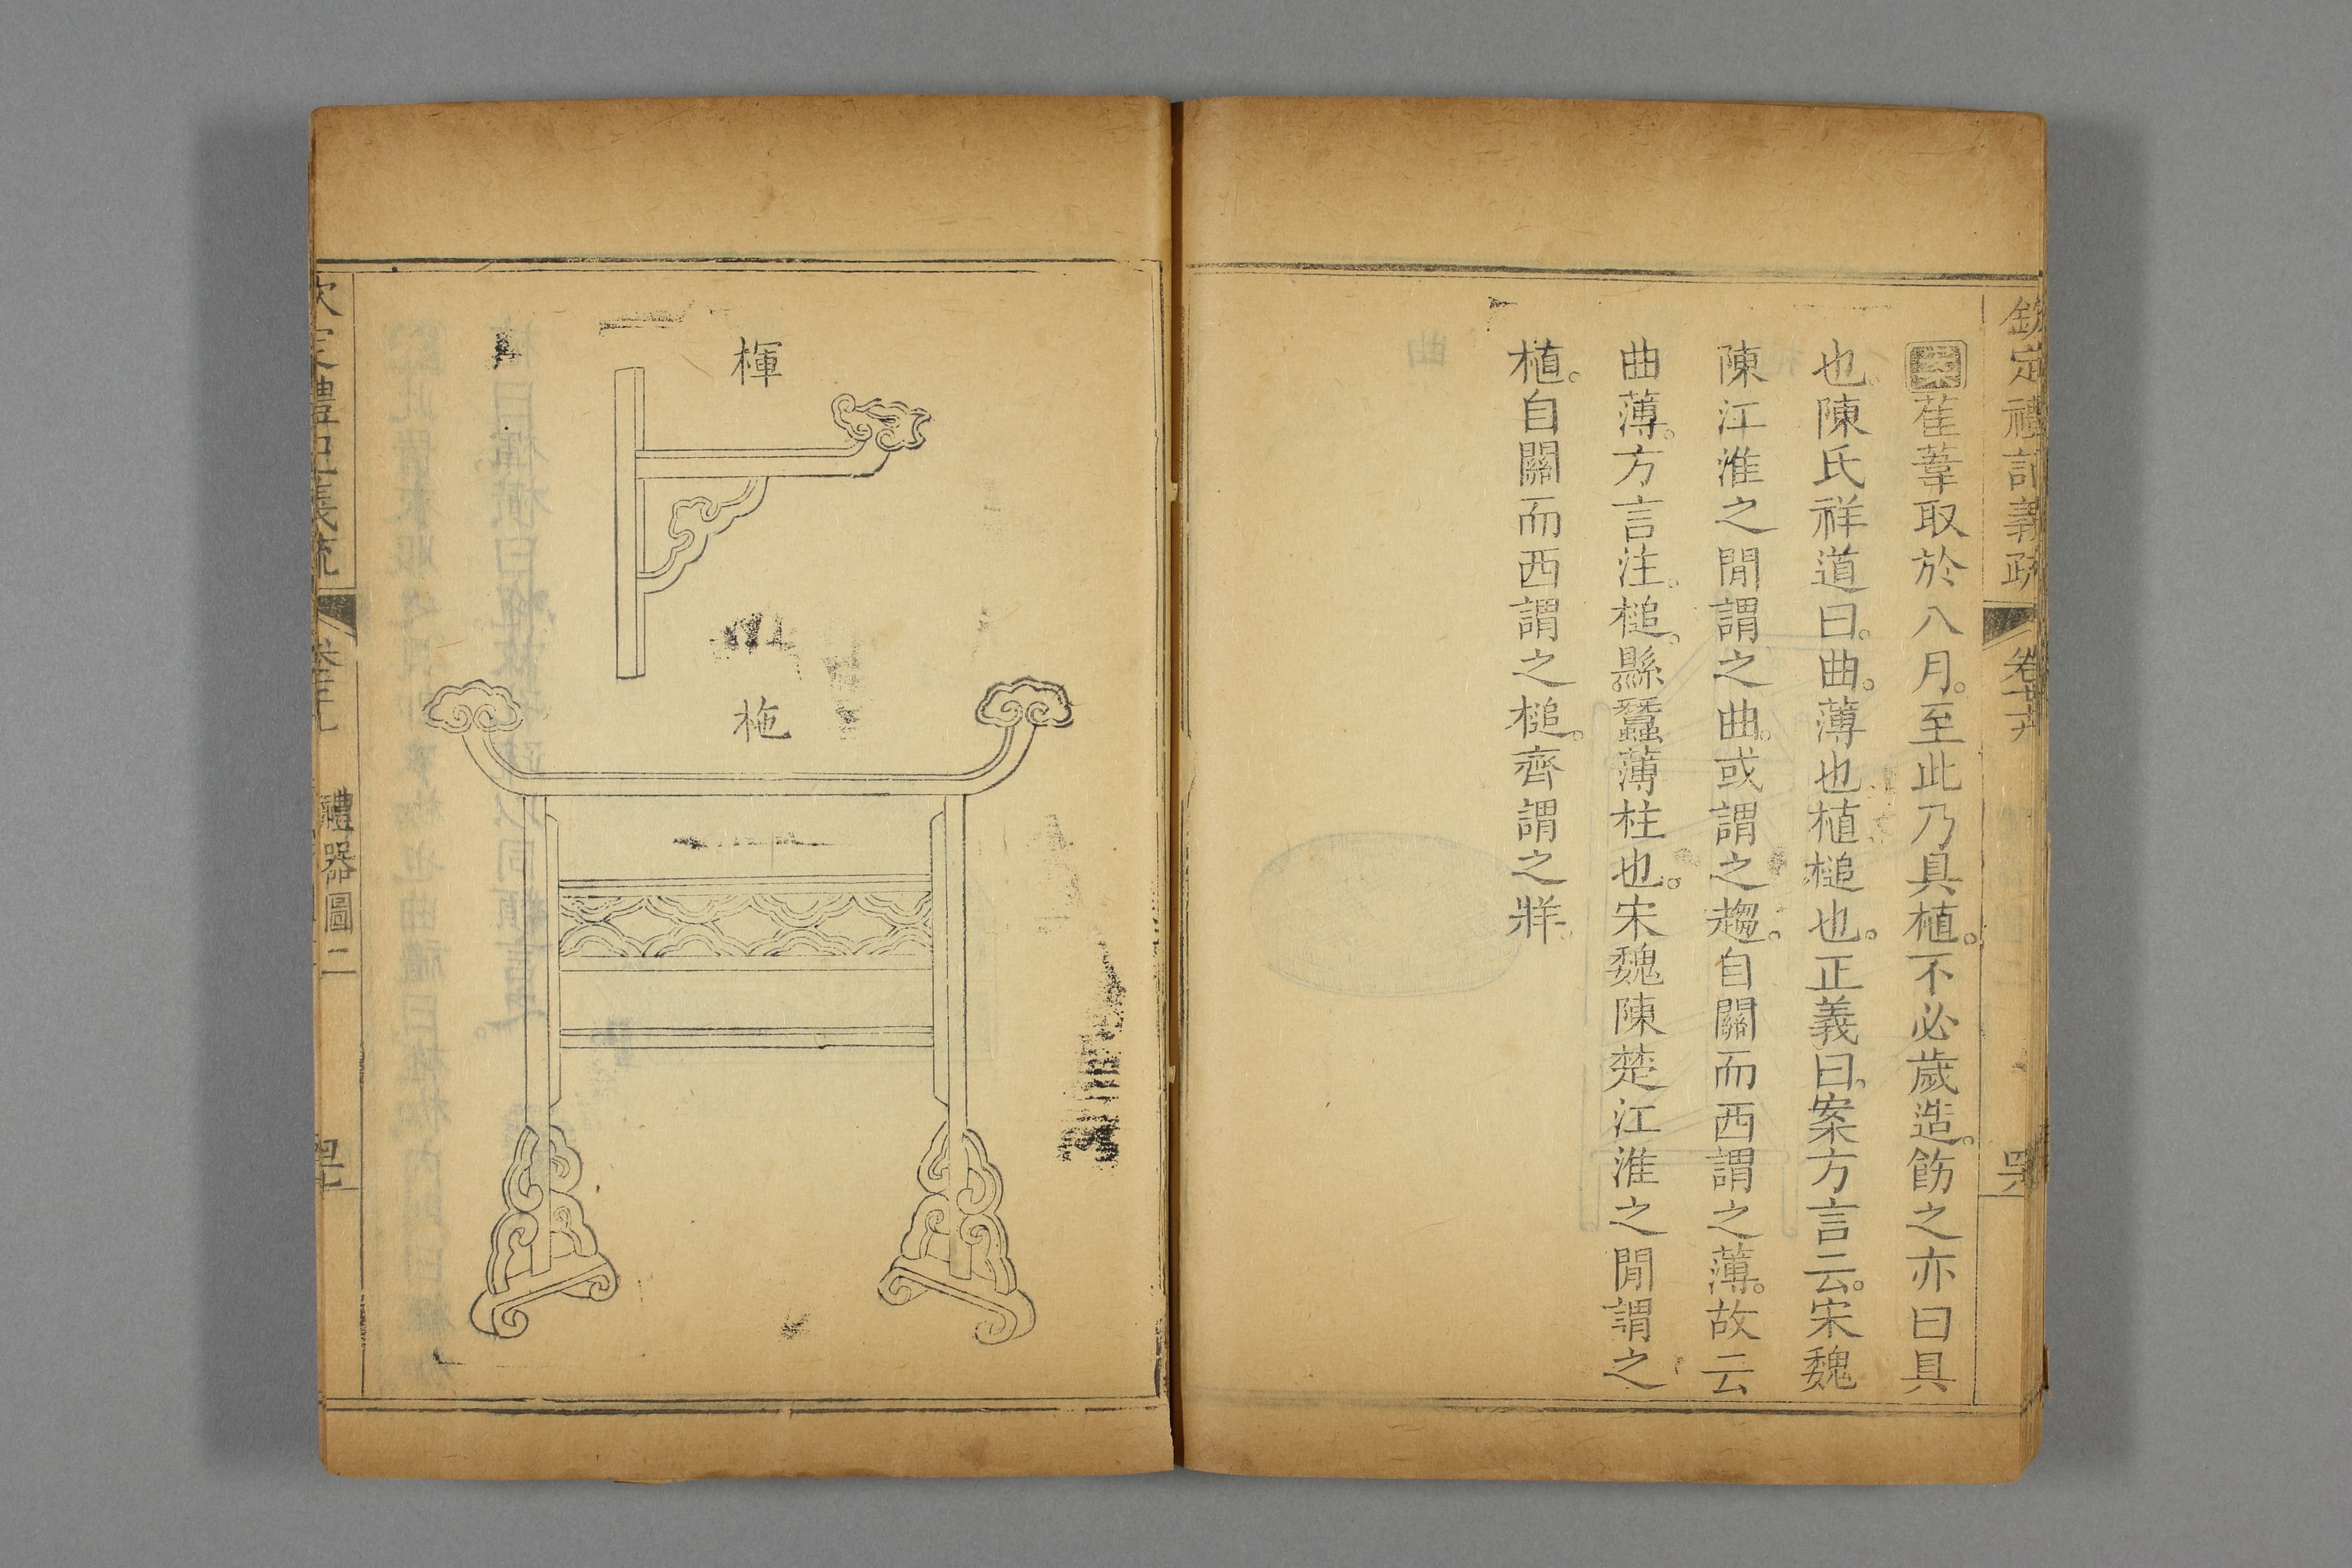 欽定禮記義疏 卷 
案萑葦取於八月。至此乃具植。不必歲造。飭之亦曰具
也。陳氏祥道曰。曲。薄也。植。槌也。正義曰。案方言云。宋魏
陳江淮之閒謂之曲。或謂之䒼。自關而西謂之薄。故云
曲薄。方言注。槌。縣蠶薄柱也。宋魏陳楚江淮之閒謂之
植。自關而西謂之槌。齊謂之牂。
楎
椸
禮器圖二